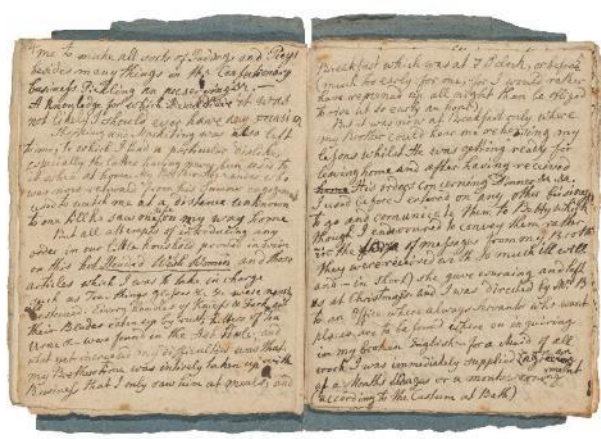 me to make all sorts of Puddings and Pieys
besides many things in the Confectionary
business Pickling an preserving &c. &c.
A knowledge for which it was
not likely I should ever have any occasion
Shopping and Marketing was also left
to me, to which I had a particular dislike
especially the latter having never been used to
it when at home. My Brother Alexander who
was more returned from his Summer engagement
used to watch me at a distance unknown
to me till he saw me on my way home
But all attempts of introducing any
order in our little household proved in vain
on this hot Headed Welsh Woman and those
articles which I was to take in charge
such as Tea-things &c. &c. were nearly
destroyed. Every handle of Knife & Fork
their Blades eaten up by rust, Heaters of Tea
Urne &c were found in the Ash hole, and
what yet increased my difficulties was that
my Brothers time was entirely taken up with
Business that I only saw him at meals, and
Breakfast which was at 7 O'clock, or before
(much too early for me, for I would rather
have remained up all night than be obliged
to rise at so early an hour)
But I was now at Breakfast only where
my Brother could hear me rehearsing my
lessons whilst He was getting ready for
leaving home and after having received
His orders concerning Dinner &c. &c.
I used before I entered on any other business
to go and comunicate them to Betty which
though I endevoured to convey them rather
in the form of messages from my Brother
They were received with so much ill will
and – in short) she gave warning and left
us at Christmas and I was directed by Mrs B
to an Office where always Servants who want
places are to be found where on inquiring
in my broken English – for a Maid of all
work I was immediately supplied
at a Months Wages or a months warning
(according to the Custum at Bath)